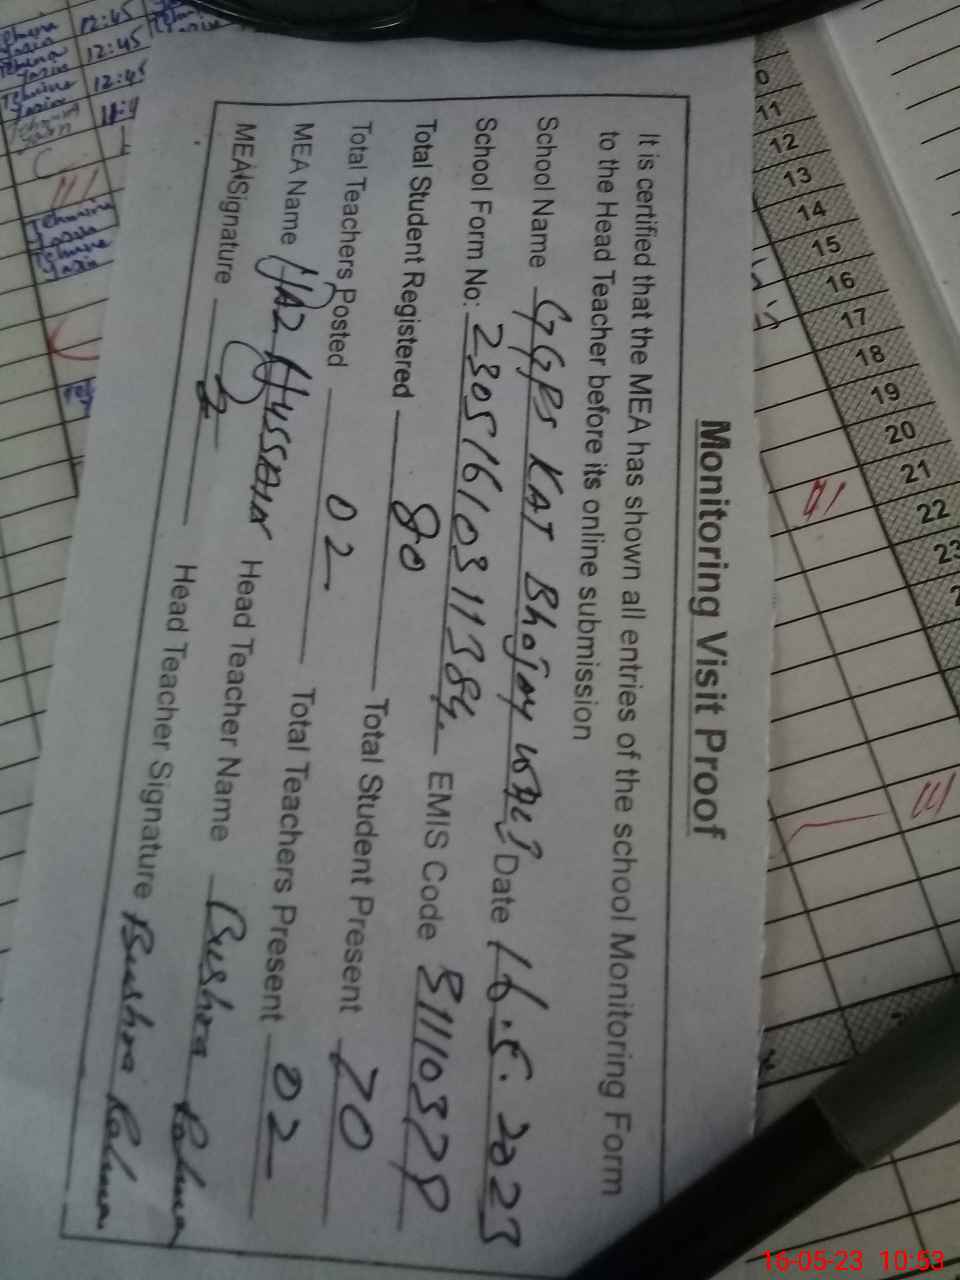 Monitoring Visit Proof
It is certified that the MEA has shown all entries of the school Monitoring Form
to the Head Teacher before its online submission
School Name GGPS KAT Bhojay Date 16.5.2023
School Form No: 23051610311384 EMIS Code 31110378
Total Student Registered 80 Total Student Present 70
Total Teachers Posted 02 Total Teachers Present 02
MEA Name Hussain Head Teacher Name Bushra Rahma
MEA Signature Head Teacher Signature Bushra Rahma
12:45
12:45
12:45
11
12
13
14
15
16
17
18
19
20
21
22
16-05-23 10:53